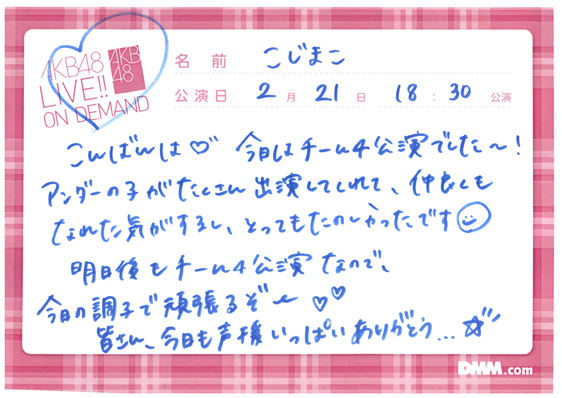 AKB48
LIVE!!
ON DEMAND
AKB
48
名前 こじまこ
公演日 2月21日 18:30 公演
こんばんは♡ 今日はチーム4公演でした〜!
アンダーの子がたくさん出演してくれて、仲良くも
なれた気がするし、とってもたのしかったです
明日後もチーム4公演なので、
今日の調子で頑張るぞ〜♡♡
皆さん、今日も声援いっぱいありがとう...☆
DMM.com